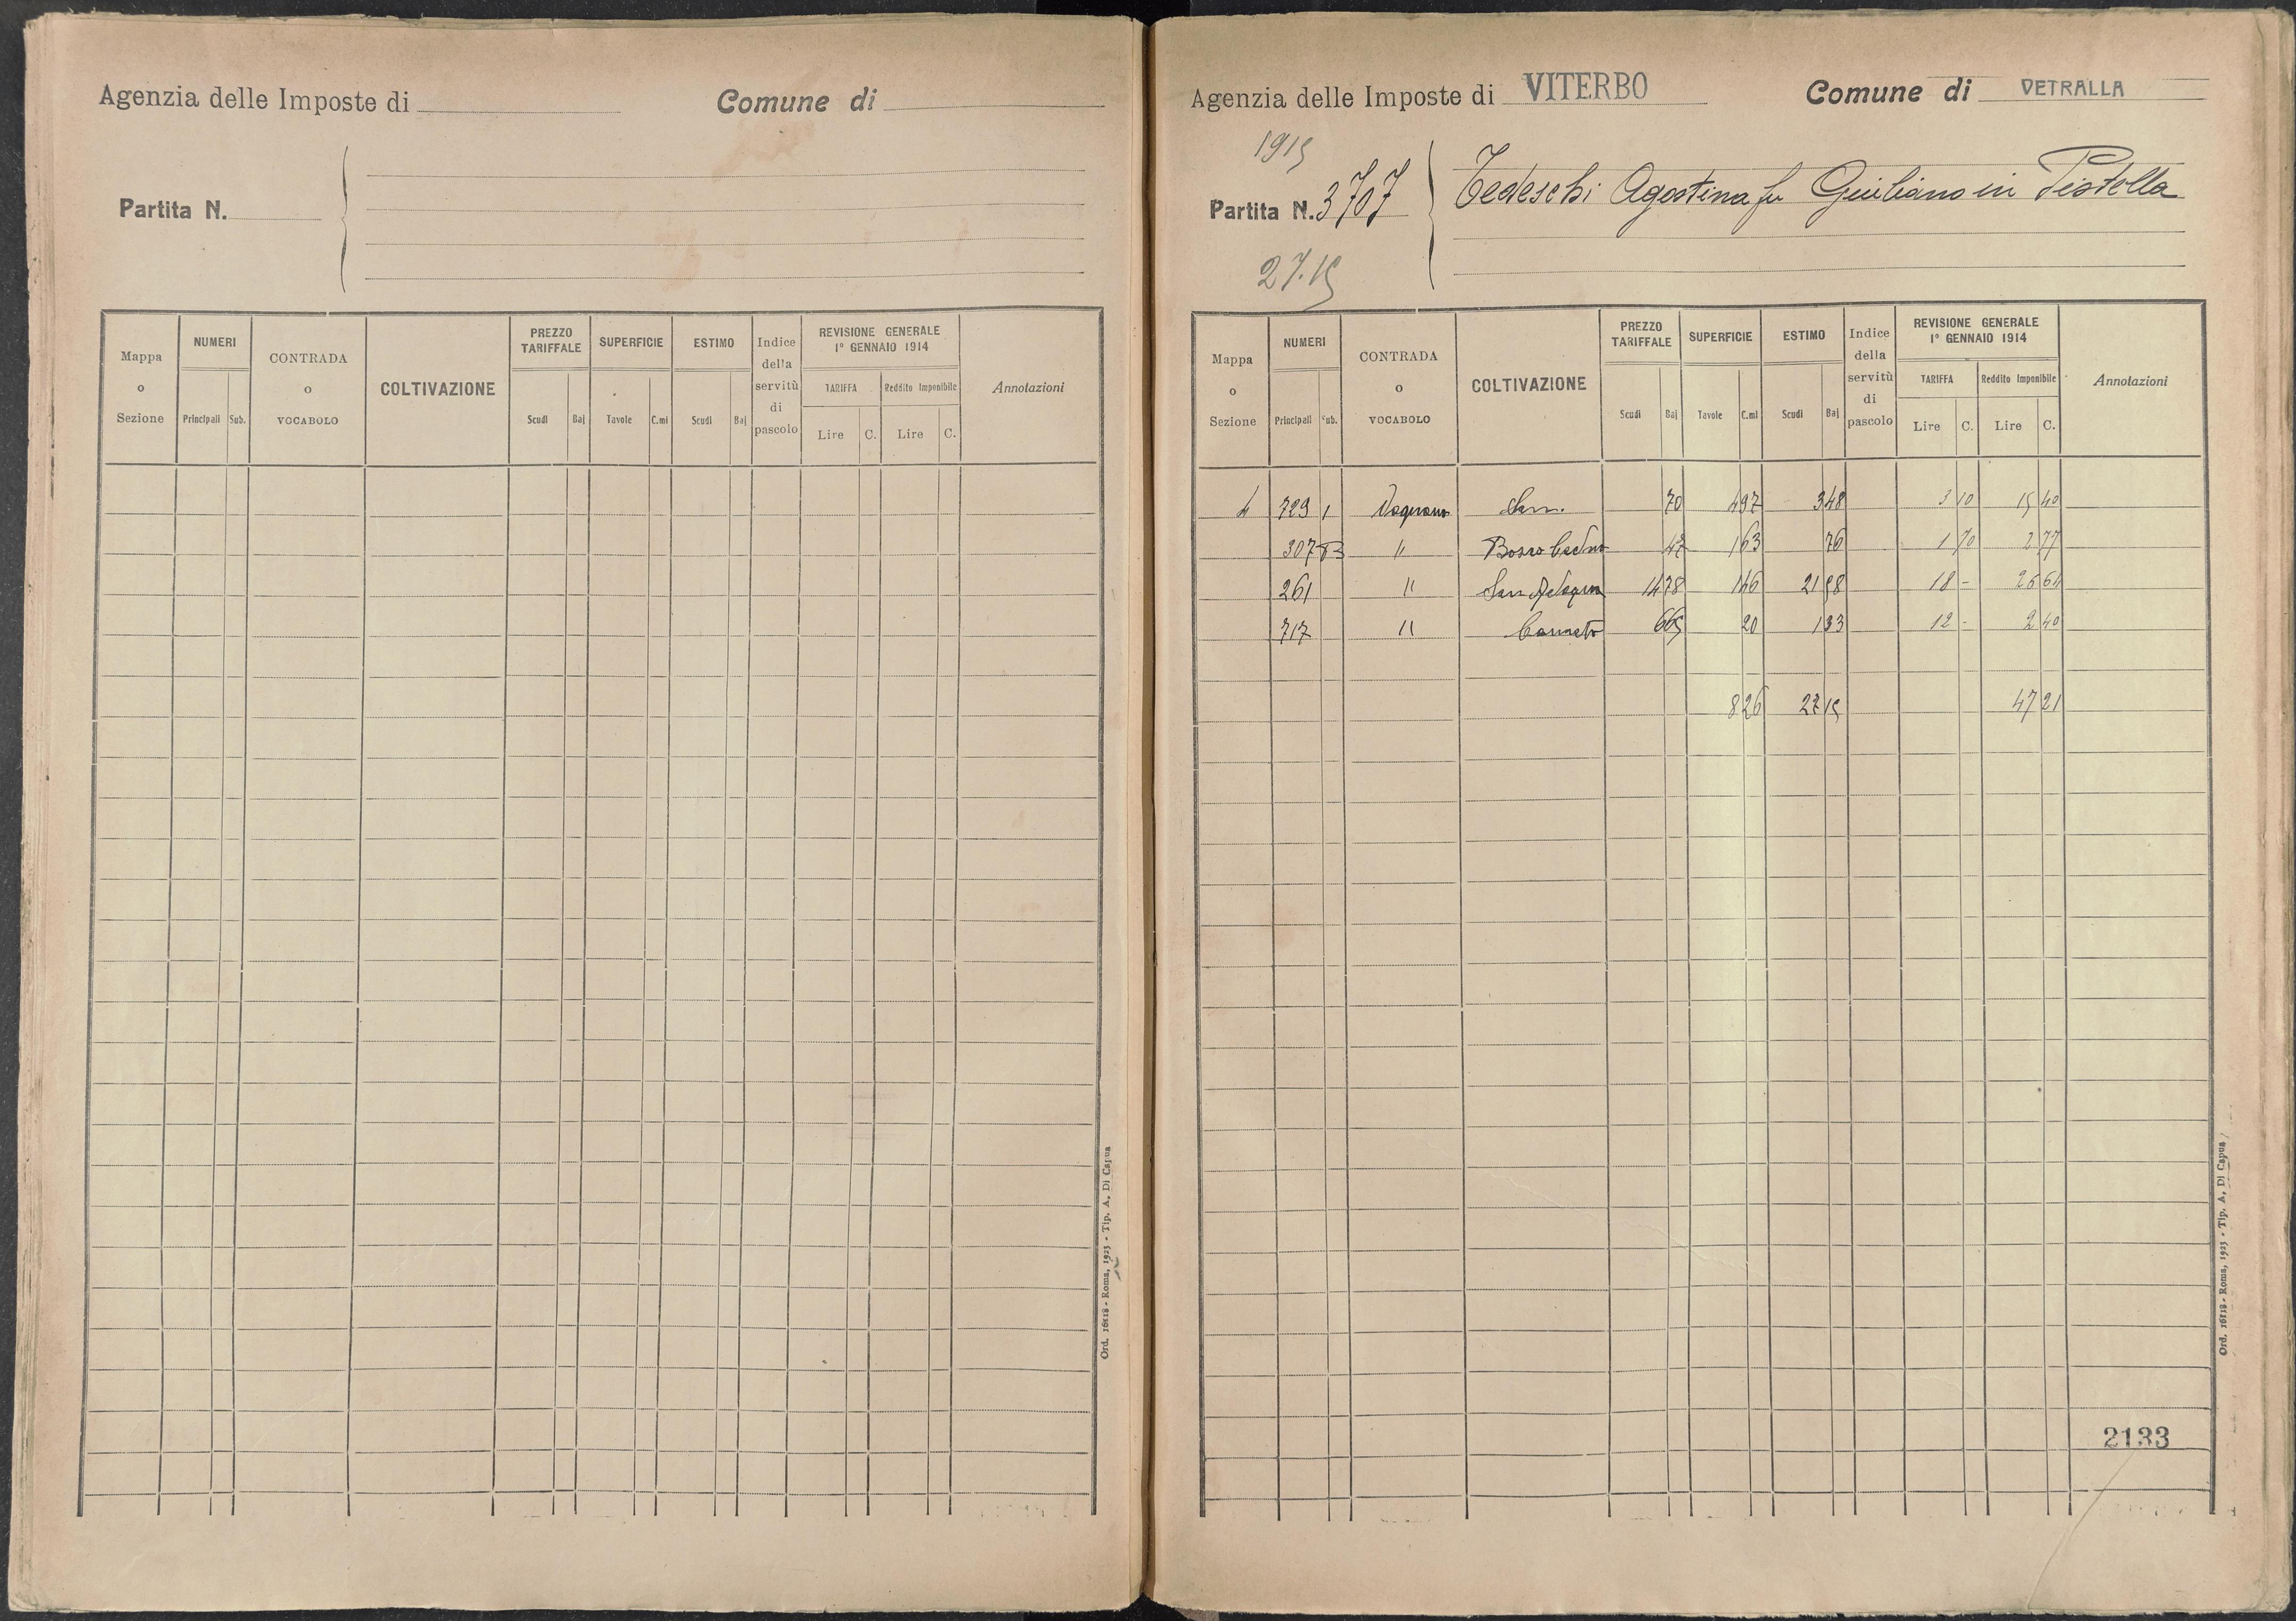 Agenzia delle Imposte di Comune di
Partita N.
Mappa o Sezione NUMERI Principali Sub. CONTRADA o VOCABOLO COLTIVAZIONE PREZZO TARIFFALE Scudi Baj SUPERFICIE Tavole C.mi ESTIMO Scudi Baj Indice della servitù di pascolo REVISIONE GENERALE 1° GENNAIO 1914 TARIFFA Lire C. Reddito Imponibile Lire C. Annotazioni
Ord. 16118 - Roma, 1923 - Tip. A. Di Capua
Agenzia delle Imposte di VITERBO Comune di VETRALLA
1915
Partita N. 3707 Tedeschi Agostina fu Giuliano in Pistella
27.15
Mappa o Sezione NUMERI Principali Sub. CONTRADA o VOCABOLO COLTIVAZIONE PREZZO TARIFFALE Scudi Baj SUPERFICIE Tavole C.mi ESTIMO Scudi Baj Indice della servitù di pascolo REVISIONE GENERALE 1° GENNAIO 1914 TARIFFA Lire C. Reddito Imponibile Lire C. Annotazioni
4 729 1 70 4 97 3 48 3 10 15 40
307 " Bosco Ceduo 47 1 63 76 1 70 2 77
261 " 14 78 1 46 21 58 18 - 26 64
717 " Canneto 6 65 20 1 33 12 - 2 40
8 26 27 15 47 21
2133
Ord. 16118 - Roma, 1923 - Tip. A. Di Capua